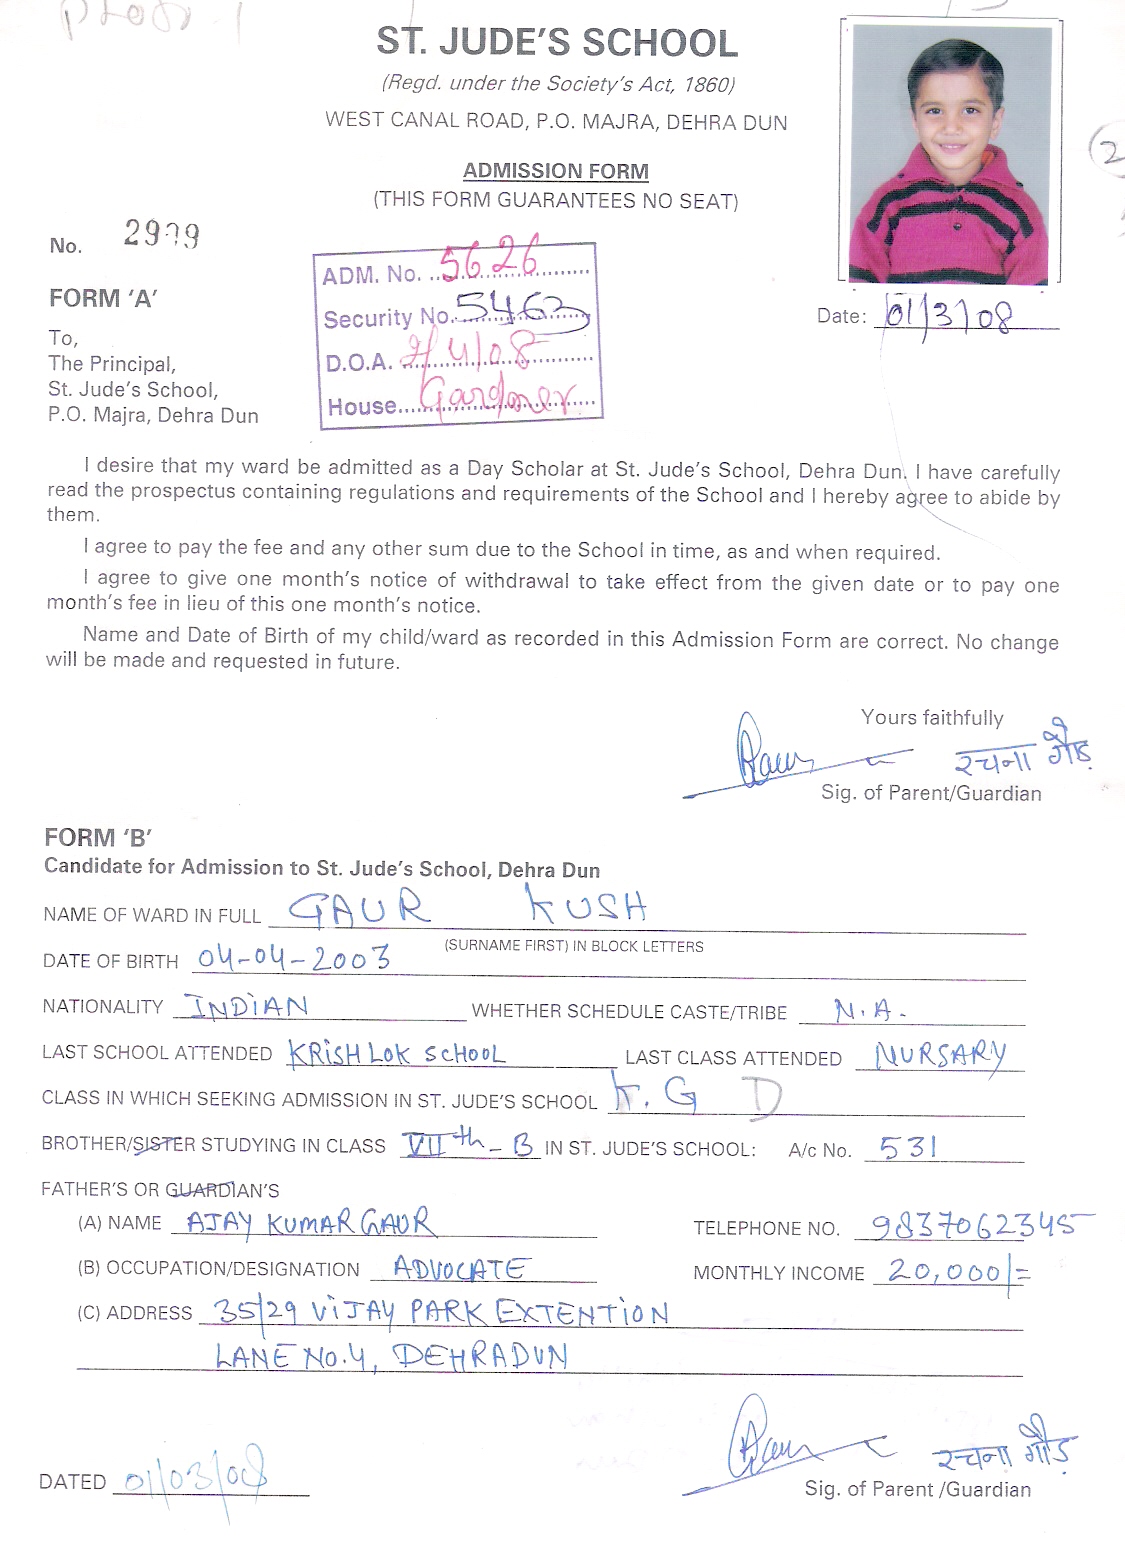 ST. JUDE'S SCHOOL
(Regd. under the Society's Act, 1860)
WEST CANAL ROAD, P.O. MAJRA, DEHRA DUN
ADMISSION FORM
(THIS FORM GUARANTEES NO SEAT)
No. 2999
ADM. No. 5626
Security No. 5463
D.O.A. 2/4/08
House Gardner
Date: 01/3/08
FORM 'A'
To,
The Principal,
St. Jude's School,
P.O. Majra, Dehra Dun
I desire that my ward be admitted as a Day Scholar at St. Jude's School, Dehra Dun. I have carefully
read the prospectus containing regulations and requirements of the School and I hereby agree to abide by
them.
I agree to pay the fee and any other sum due to the School in time, as and when required.
I agree to give one month's notice of withdrawal to take effect from the given date or to pay one
month's fee in lieu of this one month's notice.
Name and Date of Birth of my child/ward as recorded in this Admission Form are correct. No change
will be made and requested in future.
Yours faithfully
रचना गौड़
Sig. of Parent/Guardian
FORM 'B'
Candidate for Admission to St. Jude's School, Dehra Dun
NAME OF WARD IN FULL GAUR KUSH
(SURNAME FIRST) IN BLOCK LETTERS
DATE OF BIRTH 04-04-2003
NATIONALITY INDIAN WHETHER SCHEDULE CASTE/TRIBE N.A.
LAST SCHOOL ATTENDED KRISHLOK SCHOOL LAST CLASS ATTENDED NURSARY
CLASS IN WHICH SEEKING ADMISSION IN ST. JUDE'S SCHOOL K.G D
BROTHER/SISTER STUDYING IN CLASS VIIth-B IN ST. JUDE'S SCHOOL: A/c No. 531
FATHER'S OR GUARDIAN'S
(A) NAME AJAY KUMAR GAUR TELEPHONE NO. 9837062345
(B) OCCUPATION/DESIGNATION ADVOCATE MONTHLY INCOME 20,000/=
(C) ADDRESS 35/29 VIJAY PARK EXTENTION
LANE No.4, DEHRADUN
रचना गौड़
DATED 01/03/08
Sig. of Parent /Guardian